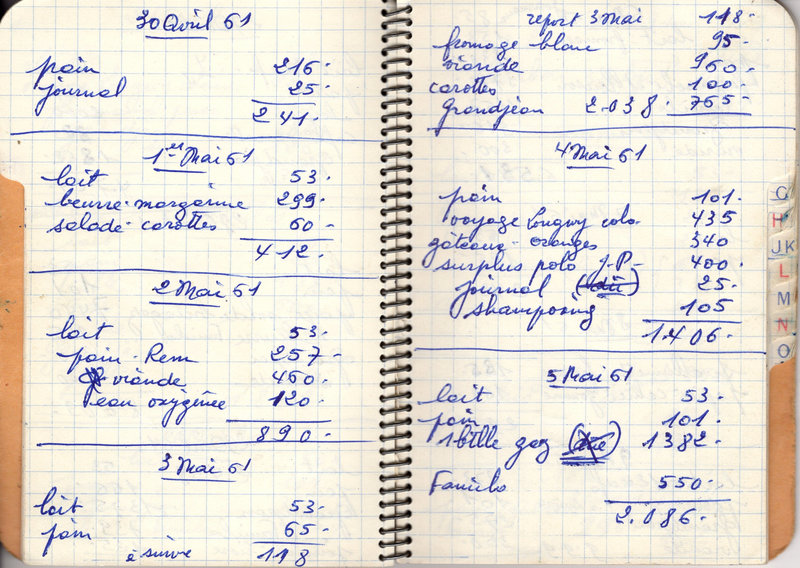 30 Avril 61
pain 216.
journal 25.
241.
1er Mai 61
lait 53.
beurre-margarine 299.
salade-carottes 60.
412.
2 Mai 61
lait 53.
pain - Rem 257.
viande 460.
eau oxygénée 120.
890.
3 Mai 61
lait 53.
pain 65.
à suivre 118
report 3 Mai 118.
fromage blanc 95.
viande 960.
carottes 100.
Grandjean 2.038. 765.
4 Mai 61
pain 101.
voyage Longwy colo. 435
gâteaux - oranges 340
surplus polo J.P. 400.
journal (dû) 25.
shampoing 105
1.406.
5 Mai 61
lait 53.
pain 101.
1 bille gaz 1382.
550.
2.086.
C
H
JK
L
M
N
O